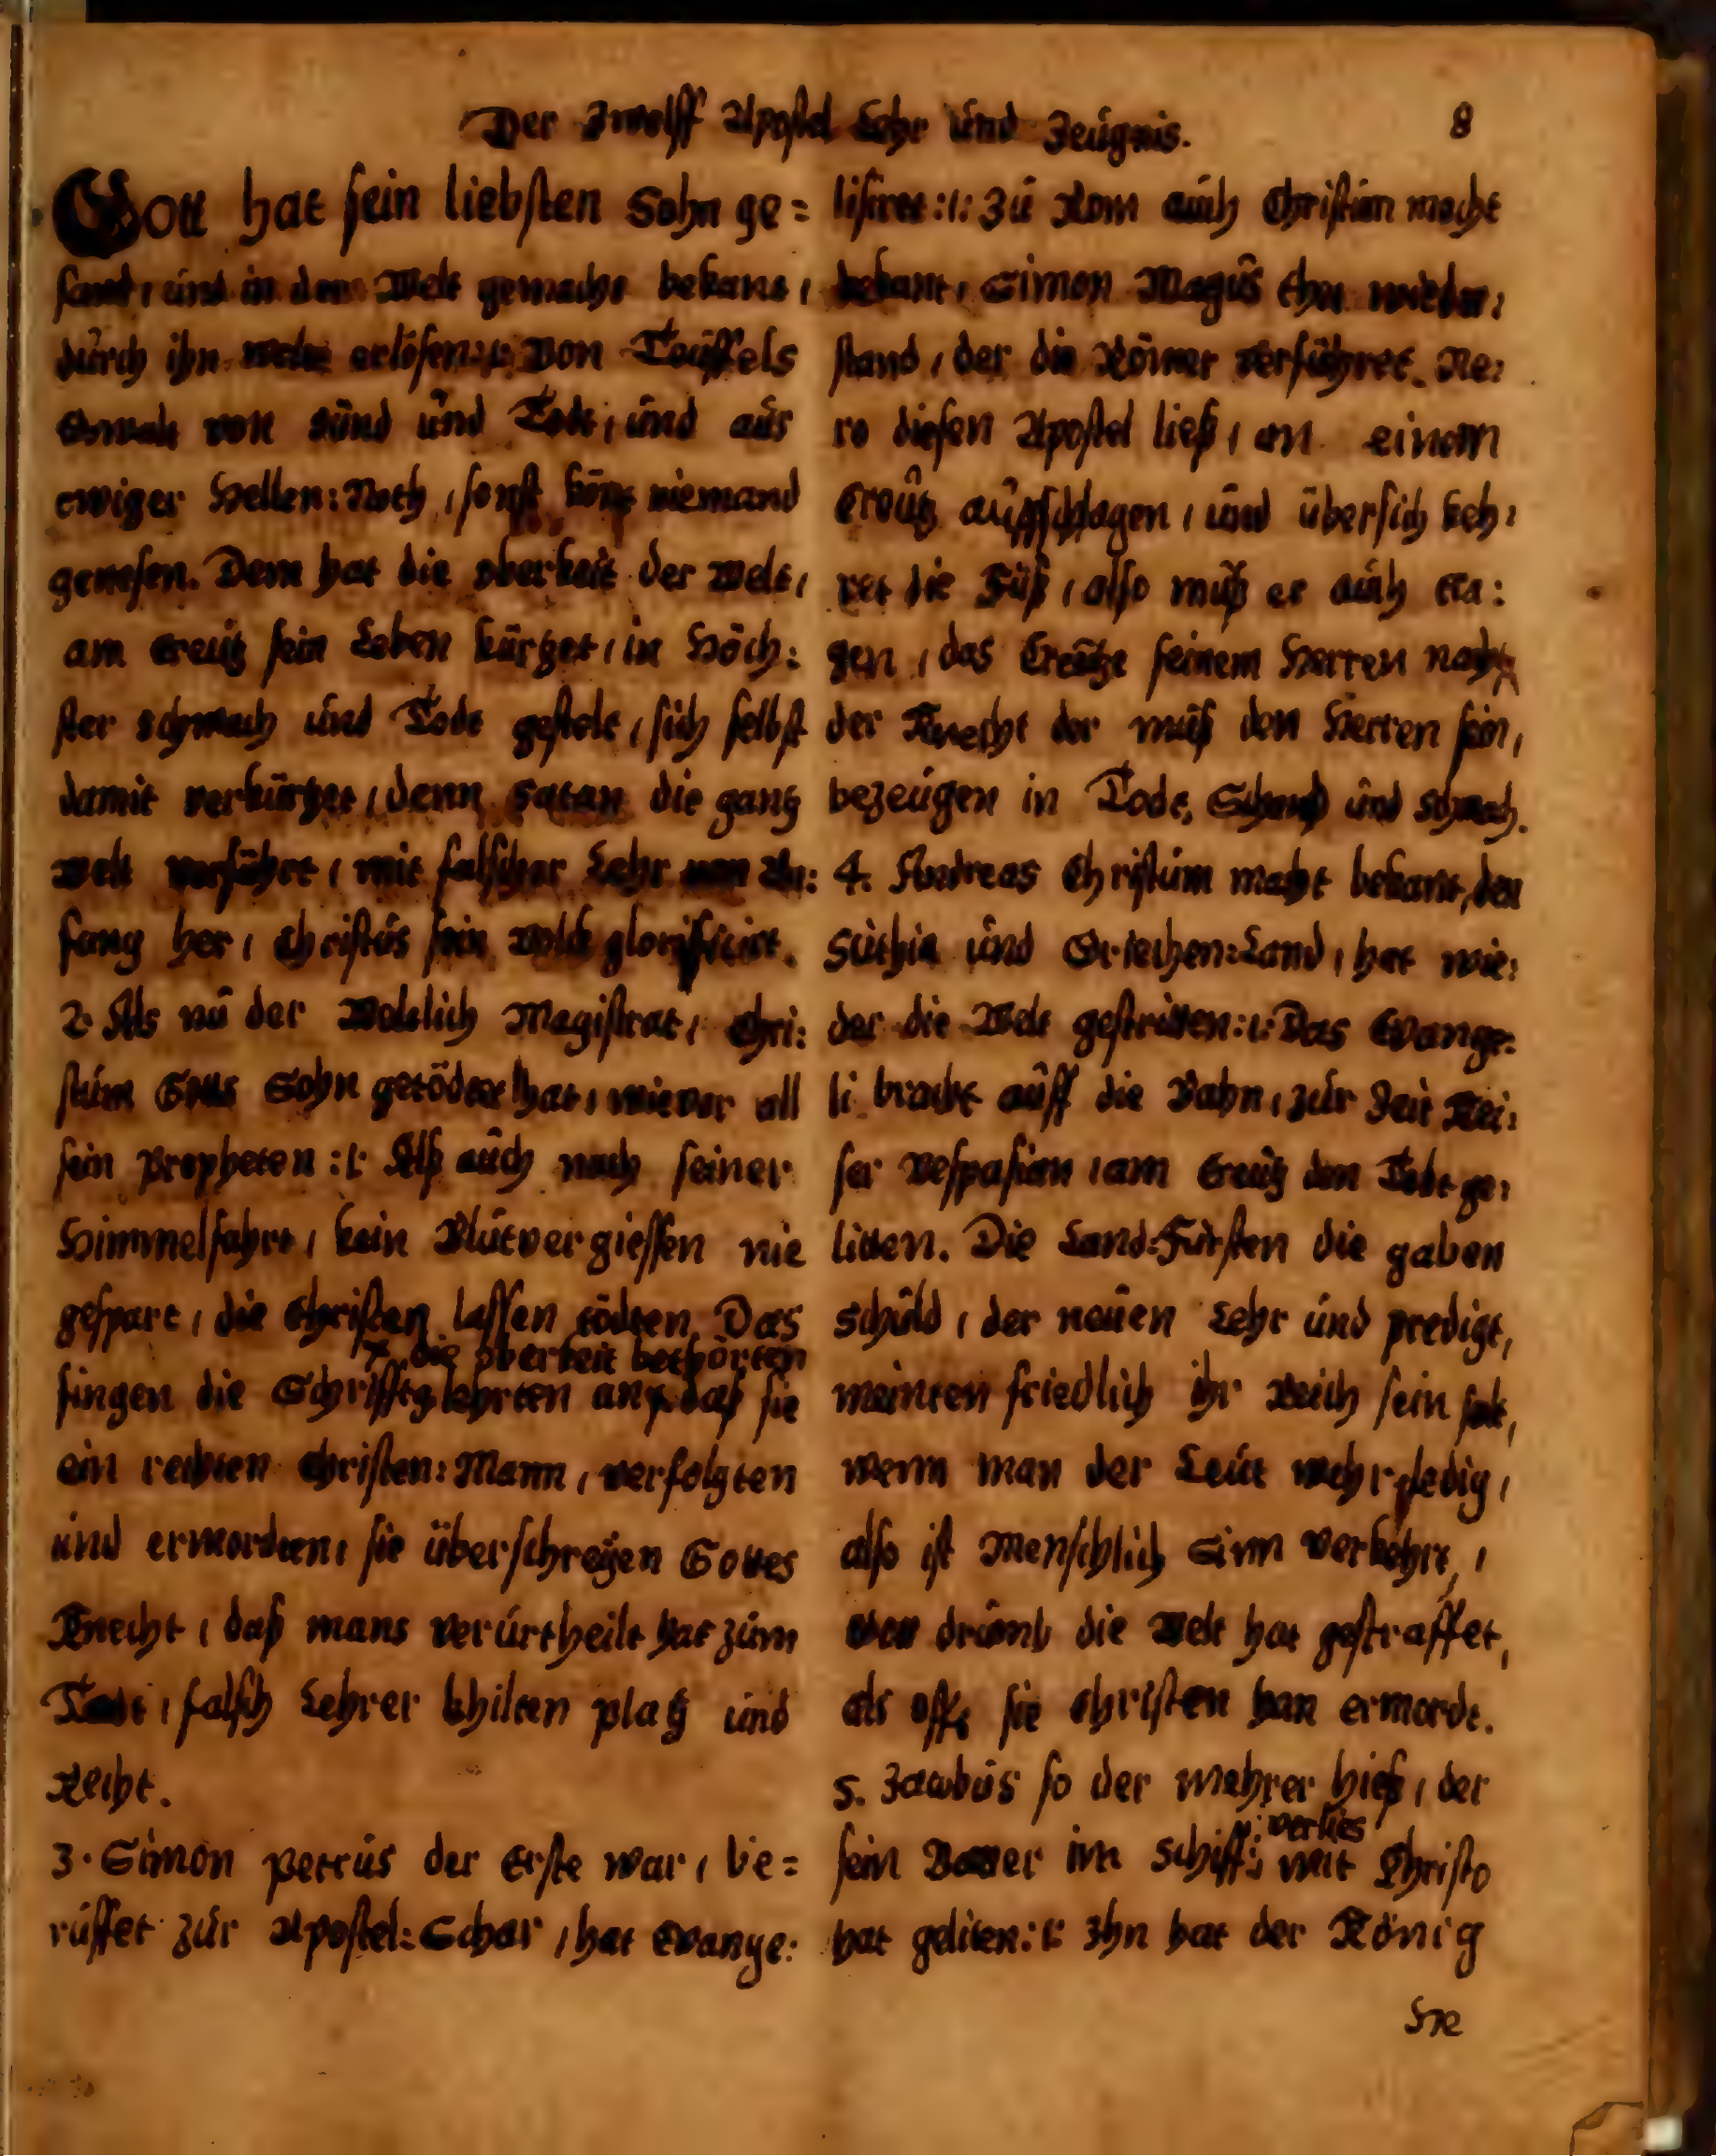 Der Zwölff Apostel Lehr und Zeugnis. 8
Gott hat sein liebsten Sohn ge=
sant, und in der Welt gemacht bekant,
durch ihn erlösen:/: Von Teuffels
Gewalt von Sünd und Todt, und aus
ewiger Hellen: Noth, sonst könt niemand
genesen. Dem hat die oberkeit der Welt,
am Creutz sein Leben kürtzet, in Höch:
ster schmach und Todt gestelt, sich selbst
damit verkürtzet, denn Satan die gantz
Welt verführt, mit falscher Lehr von An:
fang her, Christus sein Volck glorificirt.
2. Als nu der Weltlich Magistrat, Chri:
stum Gotts Sohn getödtet hat, wie vor all
sein Propheten:/: Alß auch nach seiner
Himmelfahrt, kein Blutvergiessen nie
gespart, die Christen lassen tödten. Das
+ die oberkeit bethörten
fingen die Schrifftglehrten an+ daß sie
ein rechten Christen: Mann, verfolgten
und ermordten, sie überschreyen Gottes
Knecht, daß mans verurtheilt hat zum
Todt, falsch Lehrer bhilten platz und
Recht.
3. Simon Petrus der Erste war, be=
ruffet zur Apostel: Schar, hat Evange:
lisiret:/: Zu Rom auch Christum macht
bekant, Simon Magus thet wieder:
stand, der die Römer verführet. Ne:
ro diesen Apostel ließ, an einem
Creutz auffschlagen, und übersich keh:
ret die Füß, also muß er auch tra:
gen, das Creutze seinem Herren nach,
der Knecht der muß den Herren sein,
bezeugen in Todt, Schand und Schmach.
4. Andreas Christum macht bekant, den
Sithia und Griechen: Land, hat wie:
der die Welt gestritten:/: Das Evange:
li bracht auff die Bahn, zur Zeit Kei:
ser Vespasian, am Creutz den Todt ge:
litten. Die Land: Fürsten die gaben
schuld, der neuen Lehr und predigt,
meinten friedlich ihr Reich sein solt,
wenn man der Leut wehr ledig,
also ist Menschlich Sinn verkehrt,
drumb die Welt hat gestraffet,
als offt sie Christen han ermordt.
5. Jacobus so der Mehrer hieß, der
verlies
sein Vatter im Schiff: mit Christo
hat geliten:/: Ihn hat der König
He